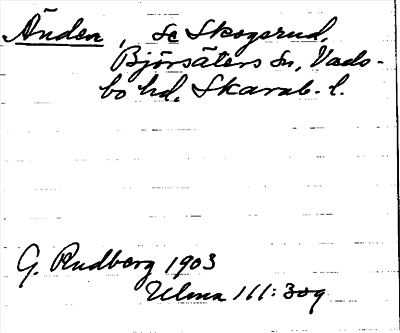 Änden, se Skogsrud,
Björsäters sn, Vads-
bo hd. Skarab. l.
G. Rudberg 1903
Ulma 111:309